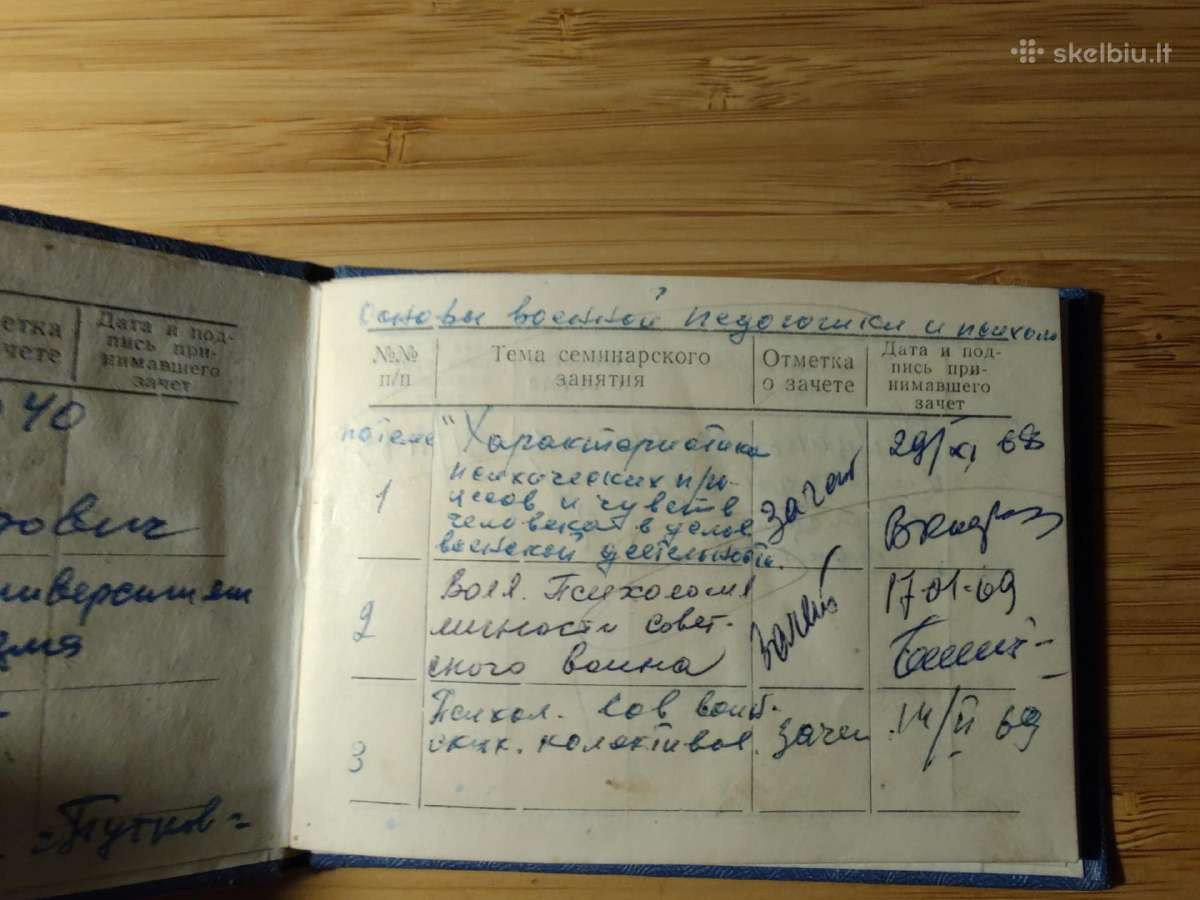 skelbiu.lt
етка
чете
Дата и под-
пись при-
нимавшего
зачет
40
ович
ниверситет
-Тутков-
Основы военной педогогики и психоло
№№
п/п
Тема семинарского
занятия
Отметка
о зачете
Дата и под-
пись при-
нимавшего
зачет
по теме "Характеристика
психических про-
цесов и чувств
человека в
воинской деятельности.
1
зачет
29/XI 68
2
Психология
личности совет-
ского воина
зачет
17-01-69
3
Психол. Сов воин
скик. колективов.
зачет
14/II 69